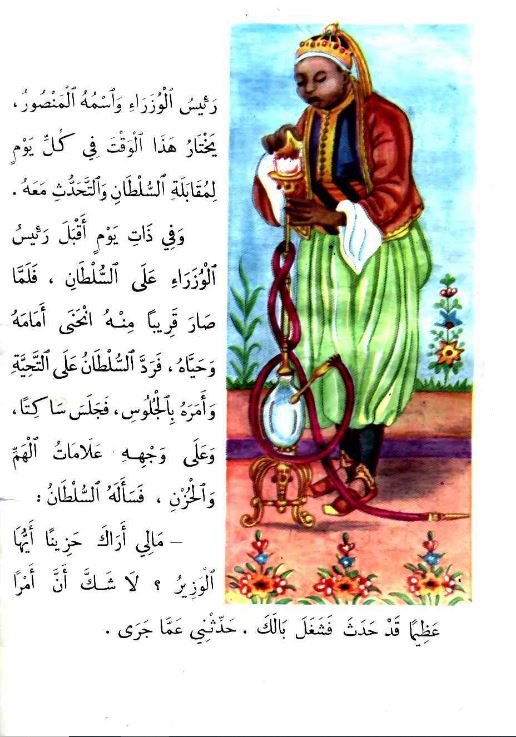 رَئِيسُ ٱلْوُزَرَاءِ وَٱسْمُهُ ٱلْمَنْصُورُ ،
يَخْتَارُ هَذَا ٱلْوَقْتَ فِي كُلِّ يَوْمٍ
لِمُقَابَلَةِ ٱلسُّلْطَانِ وَٱلتَّحَدُّثِ مَعَهُ .
وَفِي ذَاتِ يَوْمٍ أَقْبَلَ رَئِيسُ
ٱلْوُزَرَاءِ عَلَى ٱلسُّلْطَانِ ، فَلَمَّا
صَارَ قَرِيباً مِنْهُ ٱنْحَنَى أَمَامَهُ
وَحَيَّاهُ ، فَرَدَّ ٱلسُّلْطَانُ عَلَى ٱلتَّحِيَّةِ
وَأَمَرَهُ بِٱلْجُلُوسِ ، فَجَلَسَ سَاكِتًا ،
وَعَلَى وَجْهِهِ عَلَامَاتُ ٱلْهَمِّ
وَٱلْحُزْنِ ، فَسَأَلَهُ ٱلسُّلْطَانُ :
– مَالِي أَرَاكَ حَزِينًا أَيُّهَا
ٱلْوَزِيرُ ؟ لَا شَكَّ أَنَّ أَمْرًا
عَظِيمًا قَدْ حَدَثَ فَشَغَلَ بَالَكَ . حَدِّثْنِي عَمَّا جَرَى .